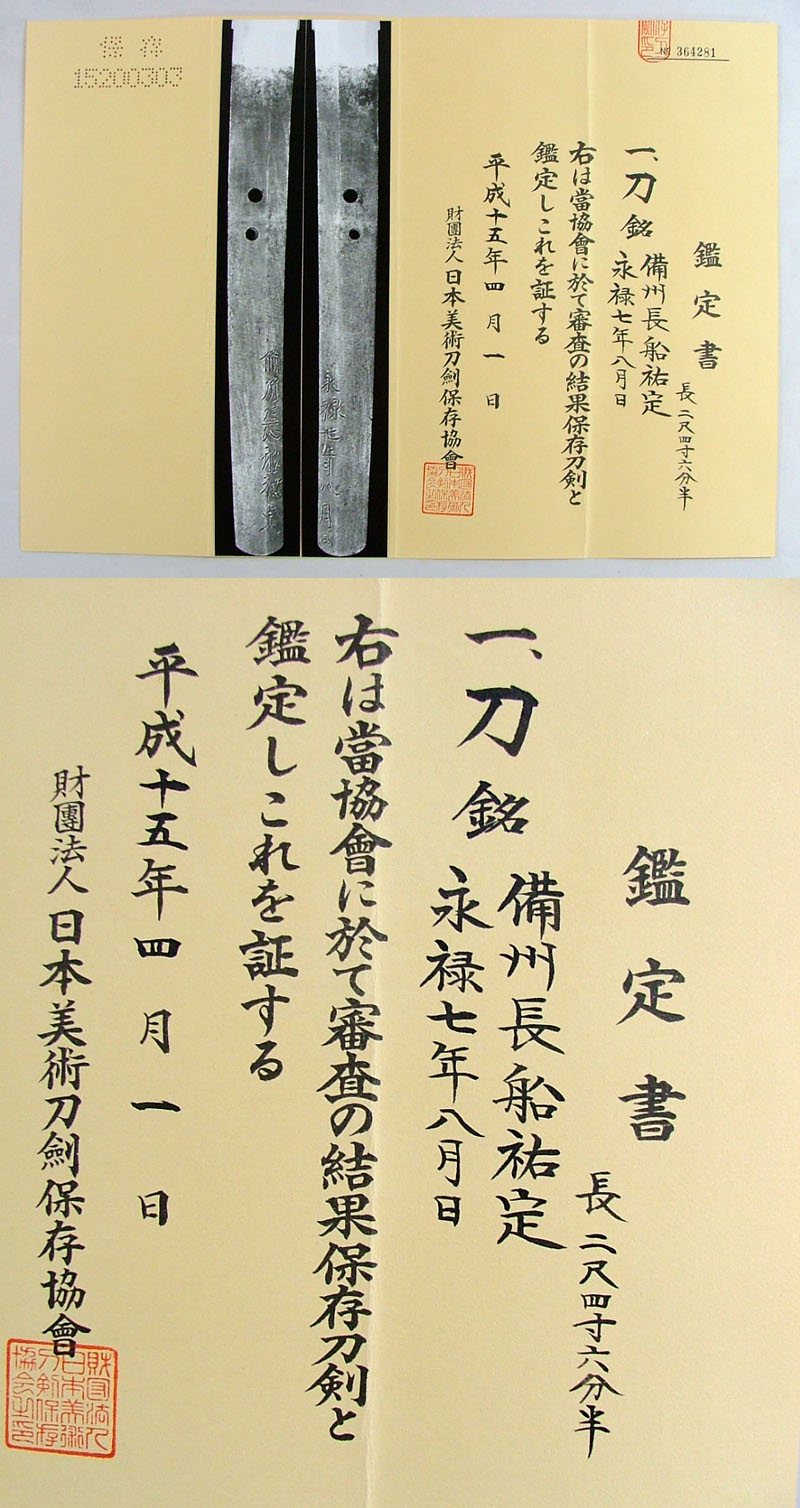 保存
15200303
№ 364281
鑑定書
長 二尺四寸六分半
一、刀 銘 備州長船祐定
永禄七年八月日
右は當協會に於て審査の結果保存刀剣と
鑑定しこれを証する
平成十五年四月一日
財團法人 日本美術刀劍保存協會
永禄七年八月日
鑑定書
長 二尺四寸六分半
一、刀 銘 備州長船祐定
永禄七年八月日
右は當協會に於て審査の結果保存刀剣と
鑑定しこれを証する
平成十五年四月一日
財團法人 日本美術刀劍保存協會